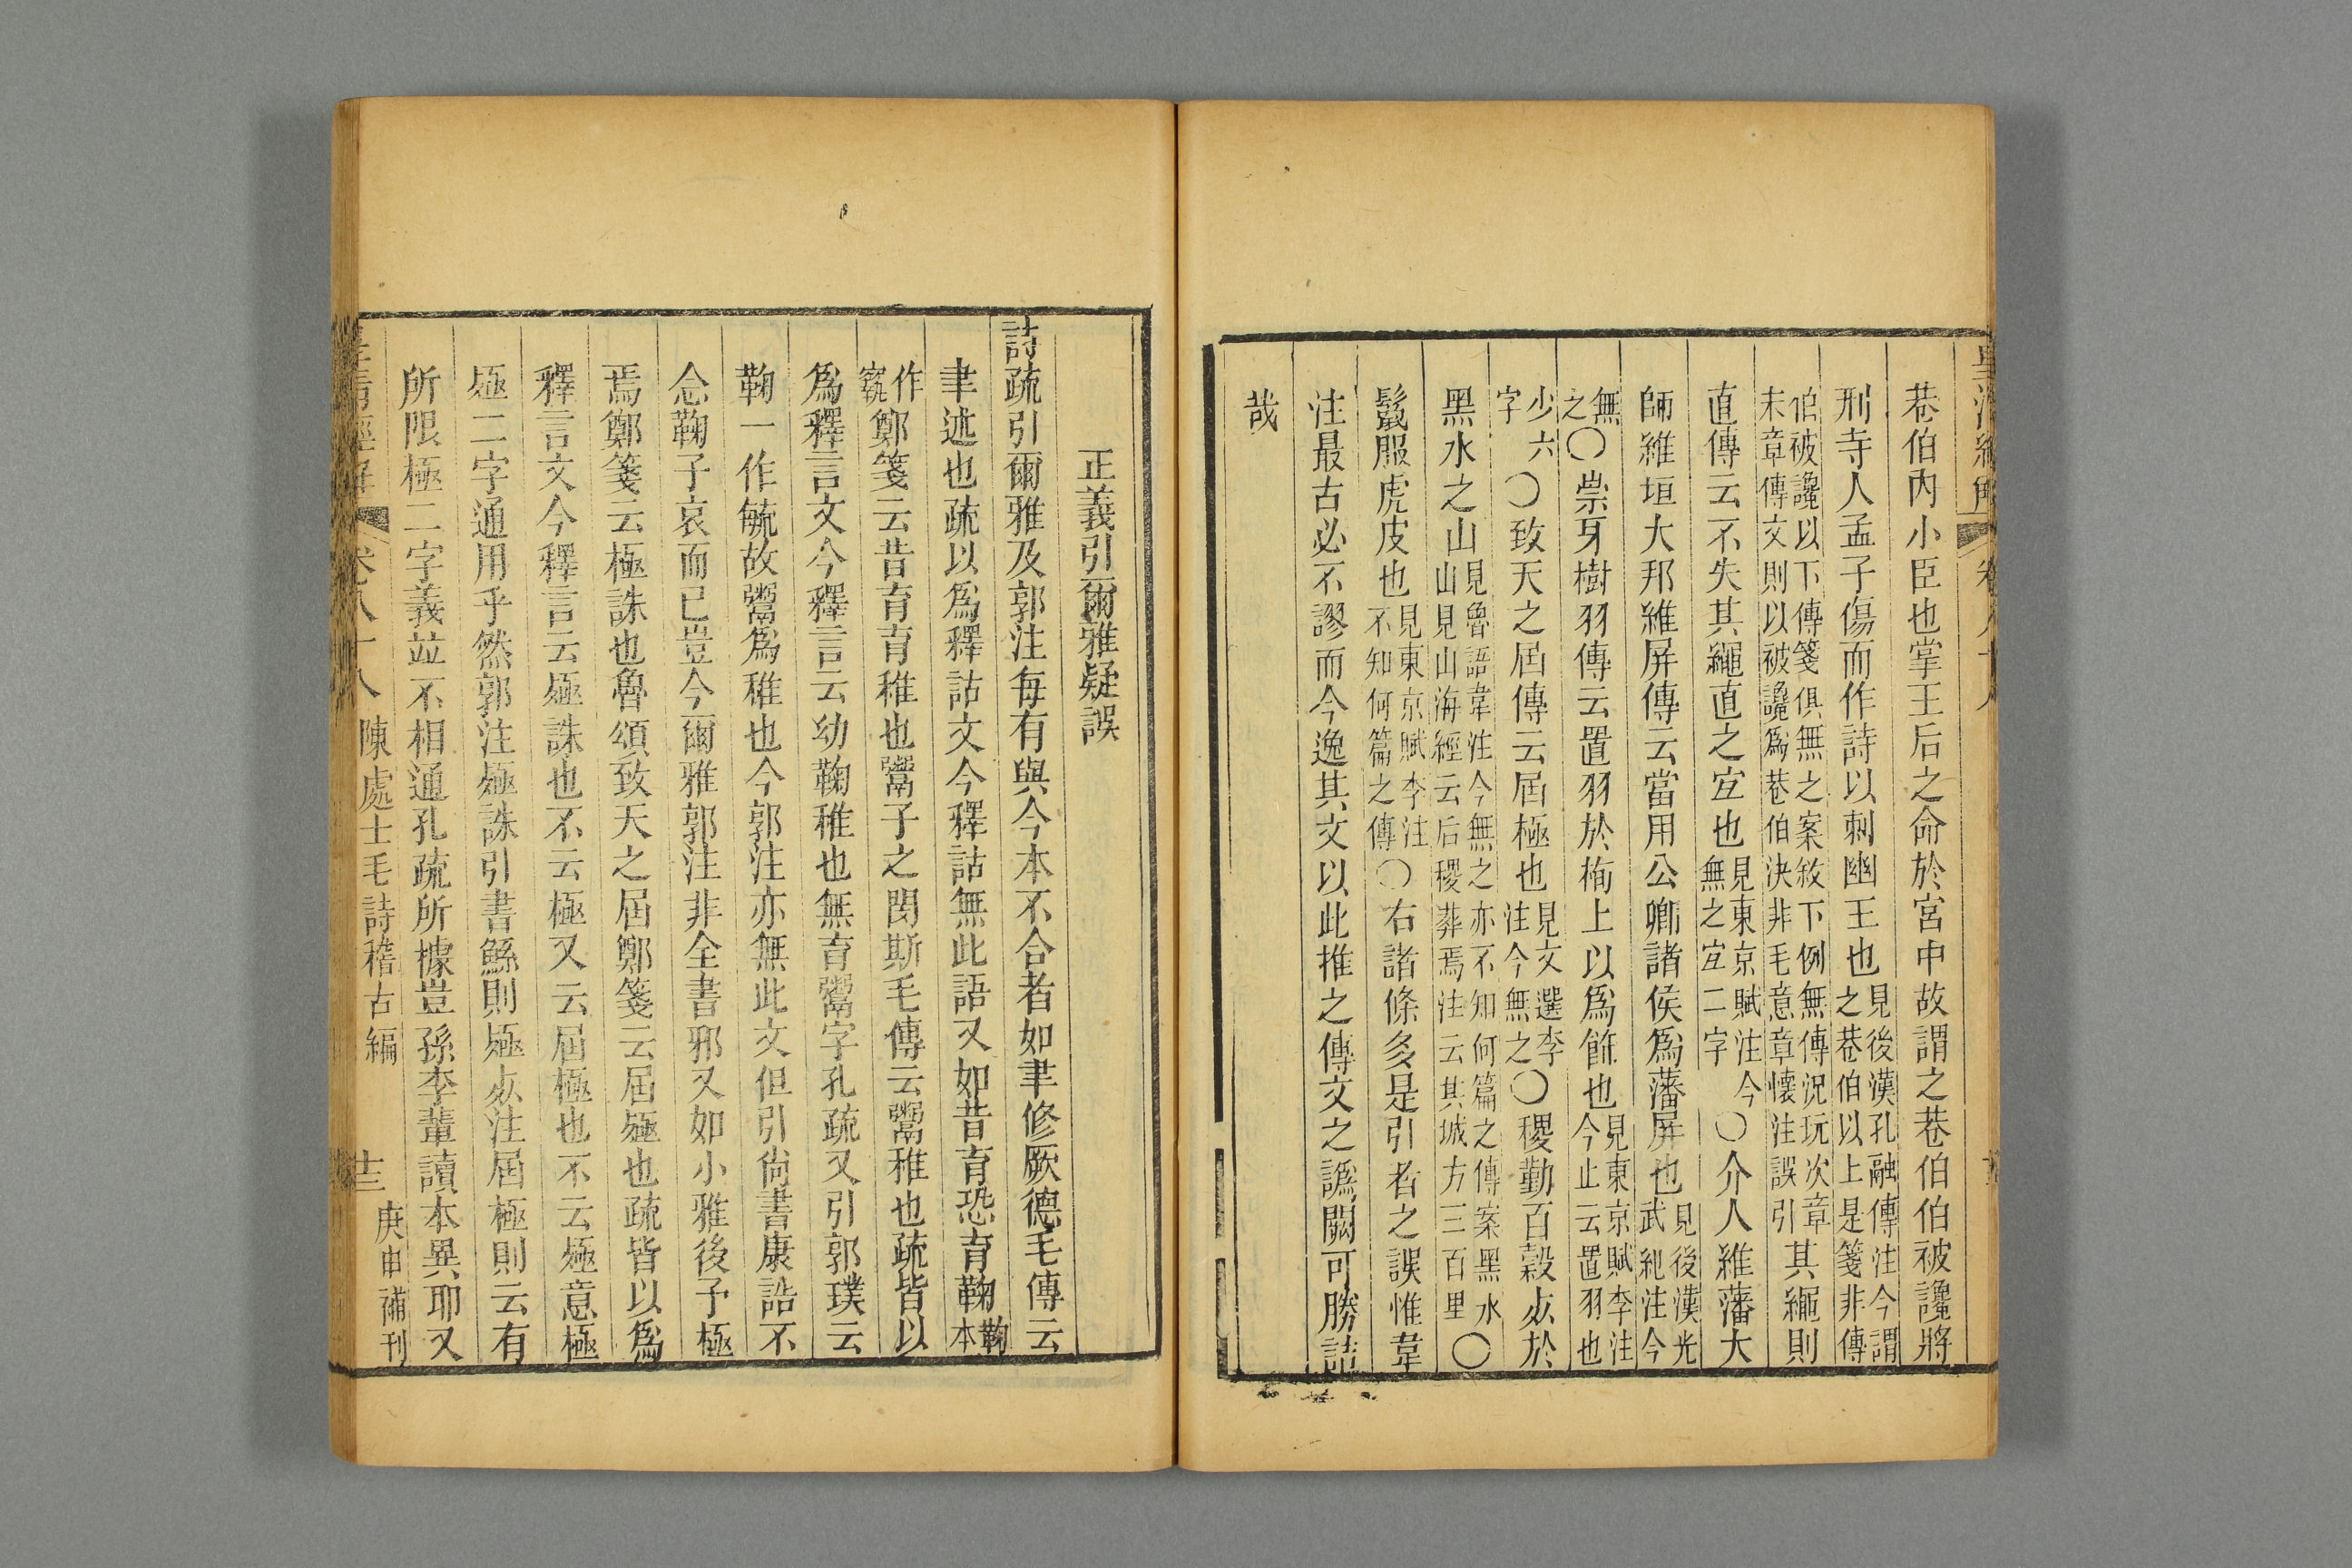 巷伯內小臣也掌王后之命於宮中故謂之巷伯伯被讒將
刑寺人孟子傷而作詩以刺幽王也見後漢孔融傳注今謂之巷伯以上是箋非傳
伯被讒以下傳箋俱無之案敘下例無傳況玩次章末章傳文則以被讒爲巷伯決非毛意章懷注誤引其繩則
直傳云不失其繩直之宜也見東京賦注今無之宜二字〇介人維藩大
師維垣大邦維屏傳云當用公卿諸侯爲藩屏也見後漢光武紀注今
無之〇崇牙樹羽傳云置羽於栒上以爲飾也見東京賦李注今止云置羽也
少六字〇致天之屆傳云屆極也見文選李注今無之〇稷勤百穀㱙於
黑水之山見魯語韋注今無之亦不知何篇之傳案黑水山見山海經云后稷葬焉注云其城方三百里〇
鬣服虎皮也見東京賦李注不知何篇之傳〇右諸條多是引者之誤惟韋
注最古必不謬而今逸其文以此推之傳文之譌闕可勝詰
哉
正義引爾雅疑誤
詩疏引爾雅及郭注每有與今本不合者如聿修厥德毛傳云
聿述也疏以爲釋詁文今釋詁無此語又如昔育恐育鞫鞫本
作𥷚鄭箋云昔育育稚也鬻子之閔斯毛傳云鬻稚也疏皆以
爲釋言文今釋言云幼鞠稚也無育鬻字孔疏又引郭璞云
鞠一作毓故鬻爲稚也今郭注亦無此文但引尙書康誥不
念鞠子哀而已豈今爾雅郭注非全書邪又如小雅後予極
焉鄭箋云極誅也魯頌致天之屆鄭箋云屆殛也疏皆以爲
釋言文今釋言云殛誅也不云極又云屆極也不云殛意極
殛二字通用乎然郭注殛誅引書鯀則殛㱙注屆極則云有
所限極二字義竝不相通孔疏所據豈孫李輩讀本異耶又
卷八十八
陳處士毛詩稽古編
庚申補刊